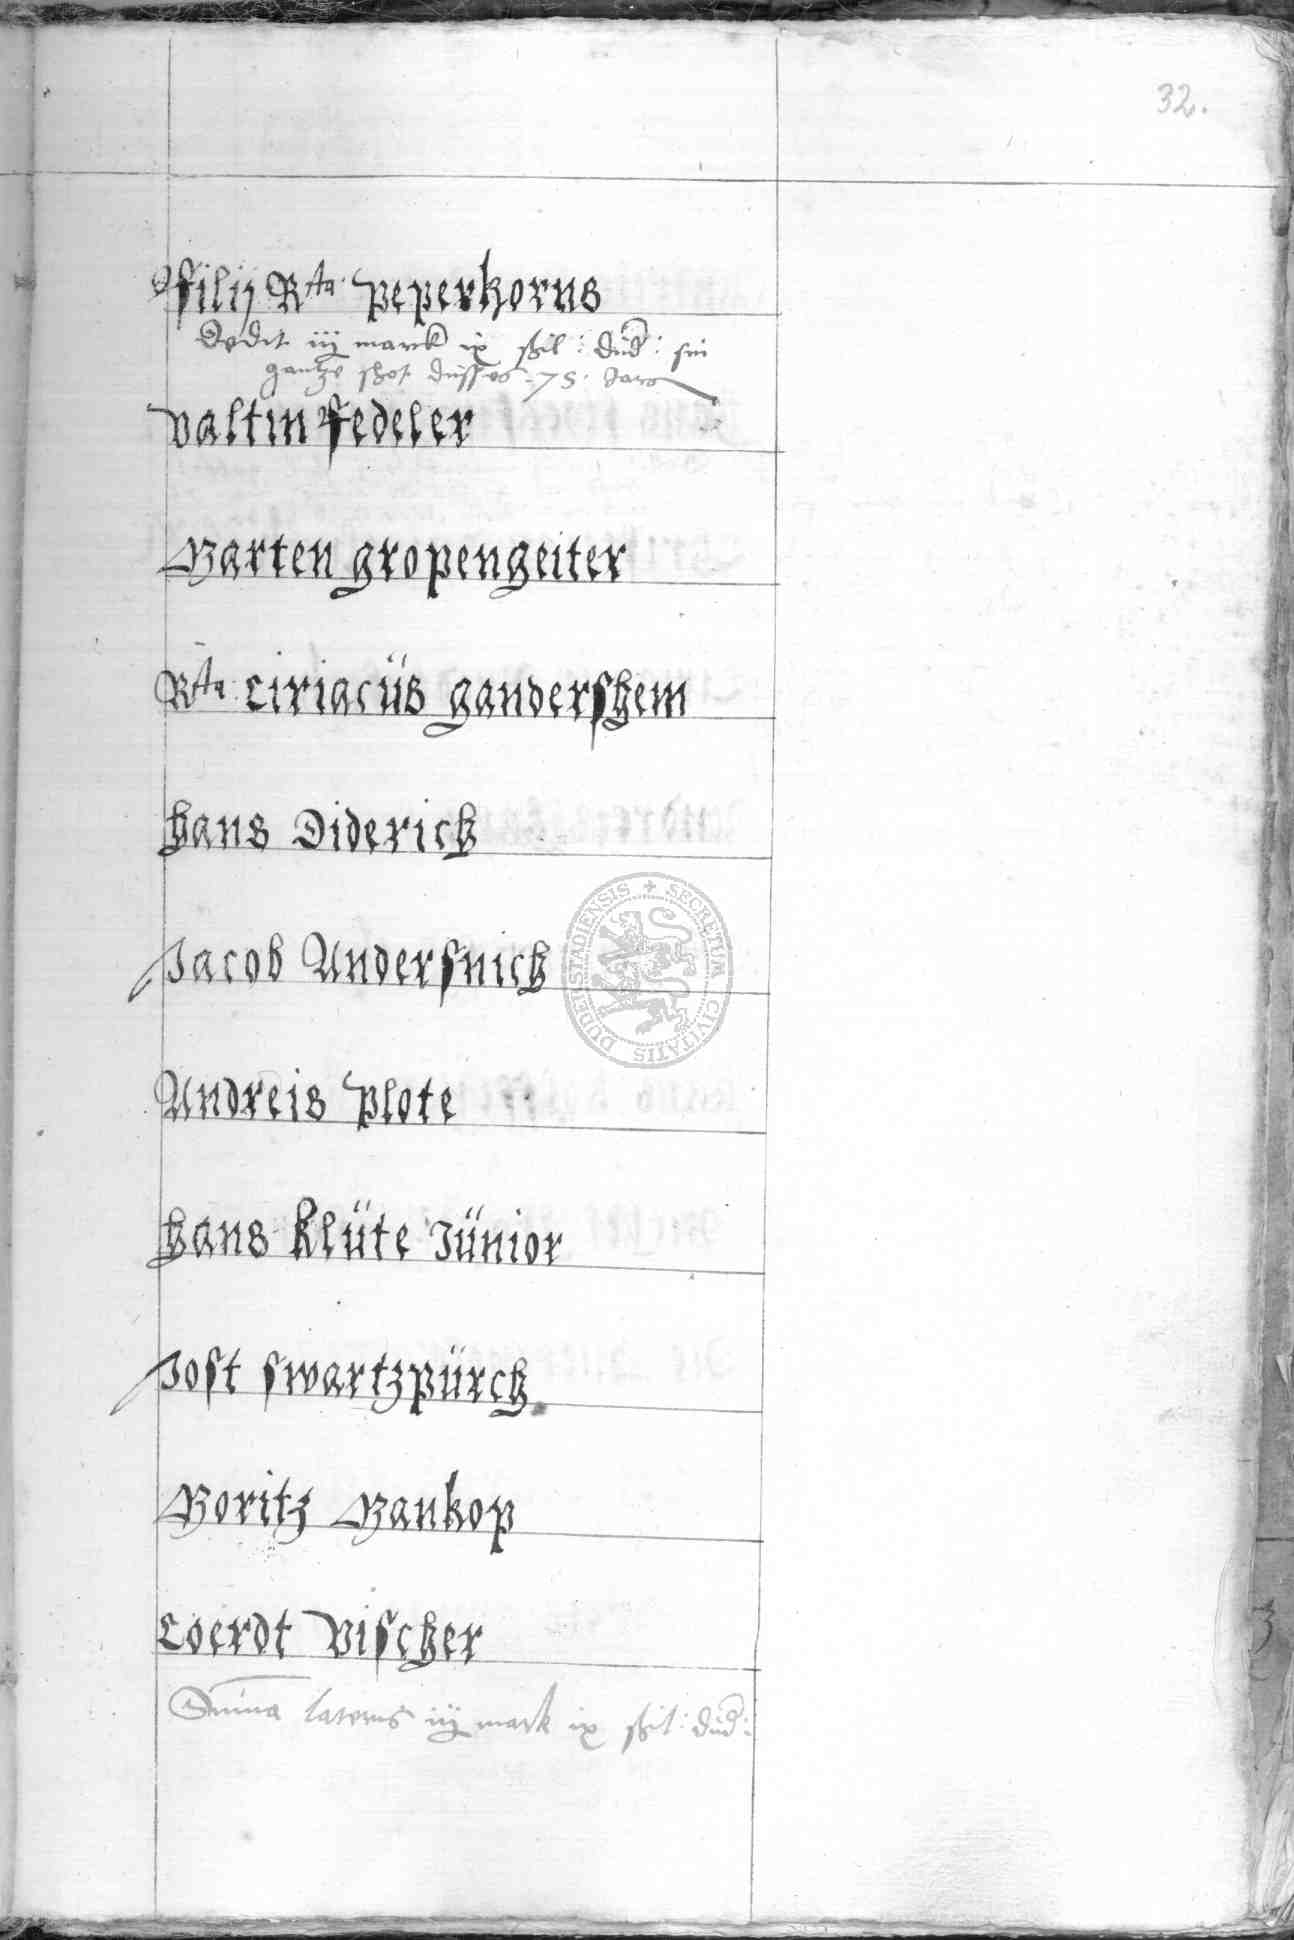 32.
filij Rta peperkorns
Dedit iij marck ix shil: dud: sin
gantze shot dusses 75. Jars
valtin fedeler
Marten gropengeiter
Rta: Ciriacüs gandershem
Hans Diderich
Jacob Andersnich
Andreis plote
Hans klüte Jünior
Jost swartzpürch
Moritz Mankop
Coerdt vischer
Suma lateris iij mark ix shil: dud:
SECRETUM CIVITATIS DUDERSTADIENSIS